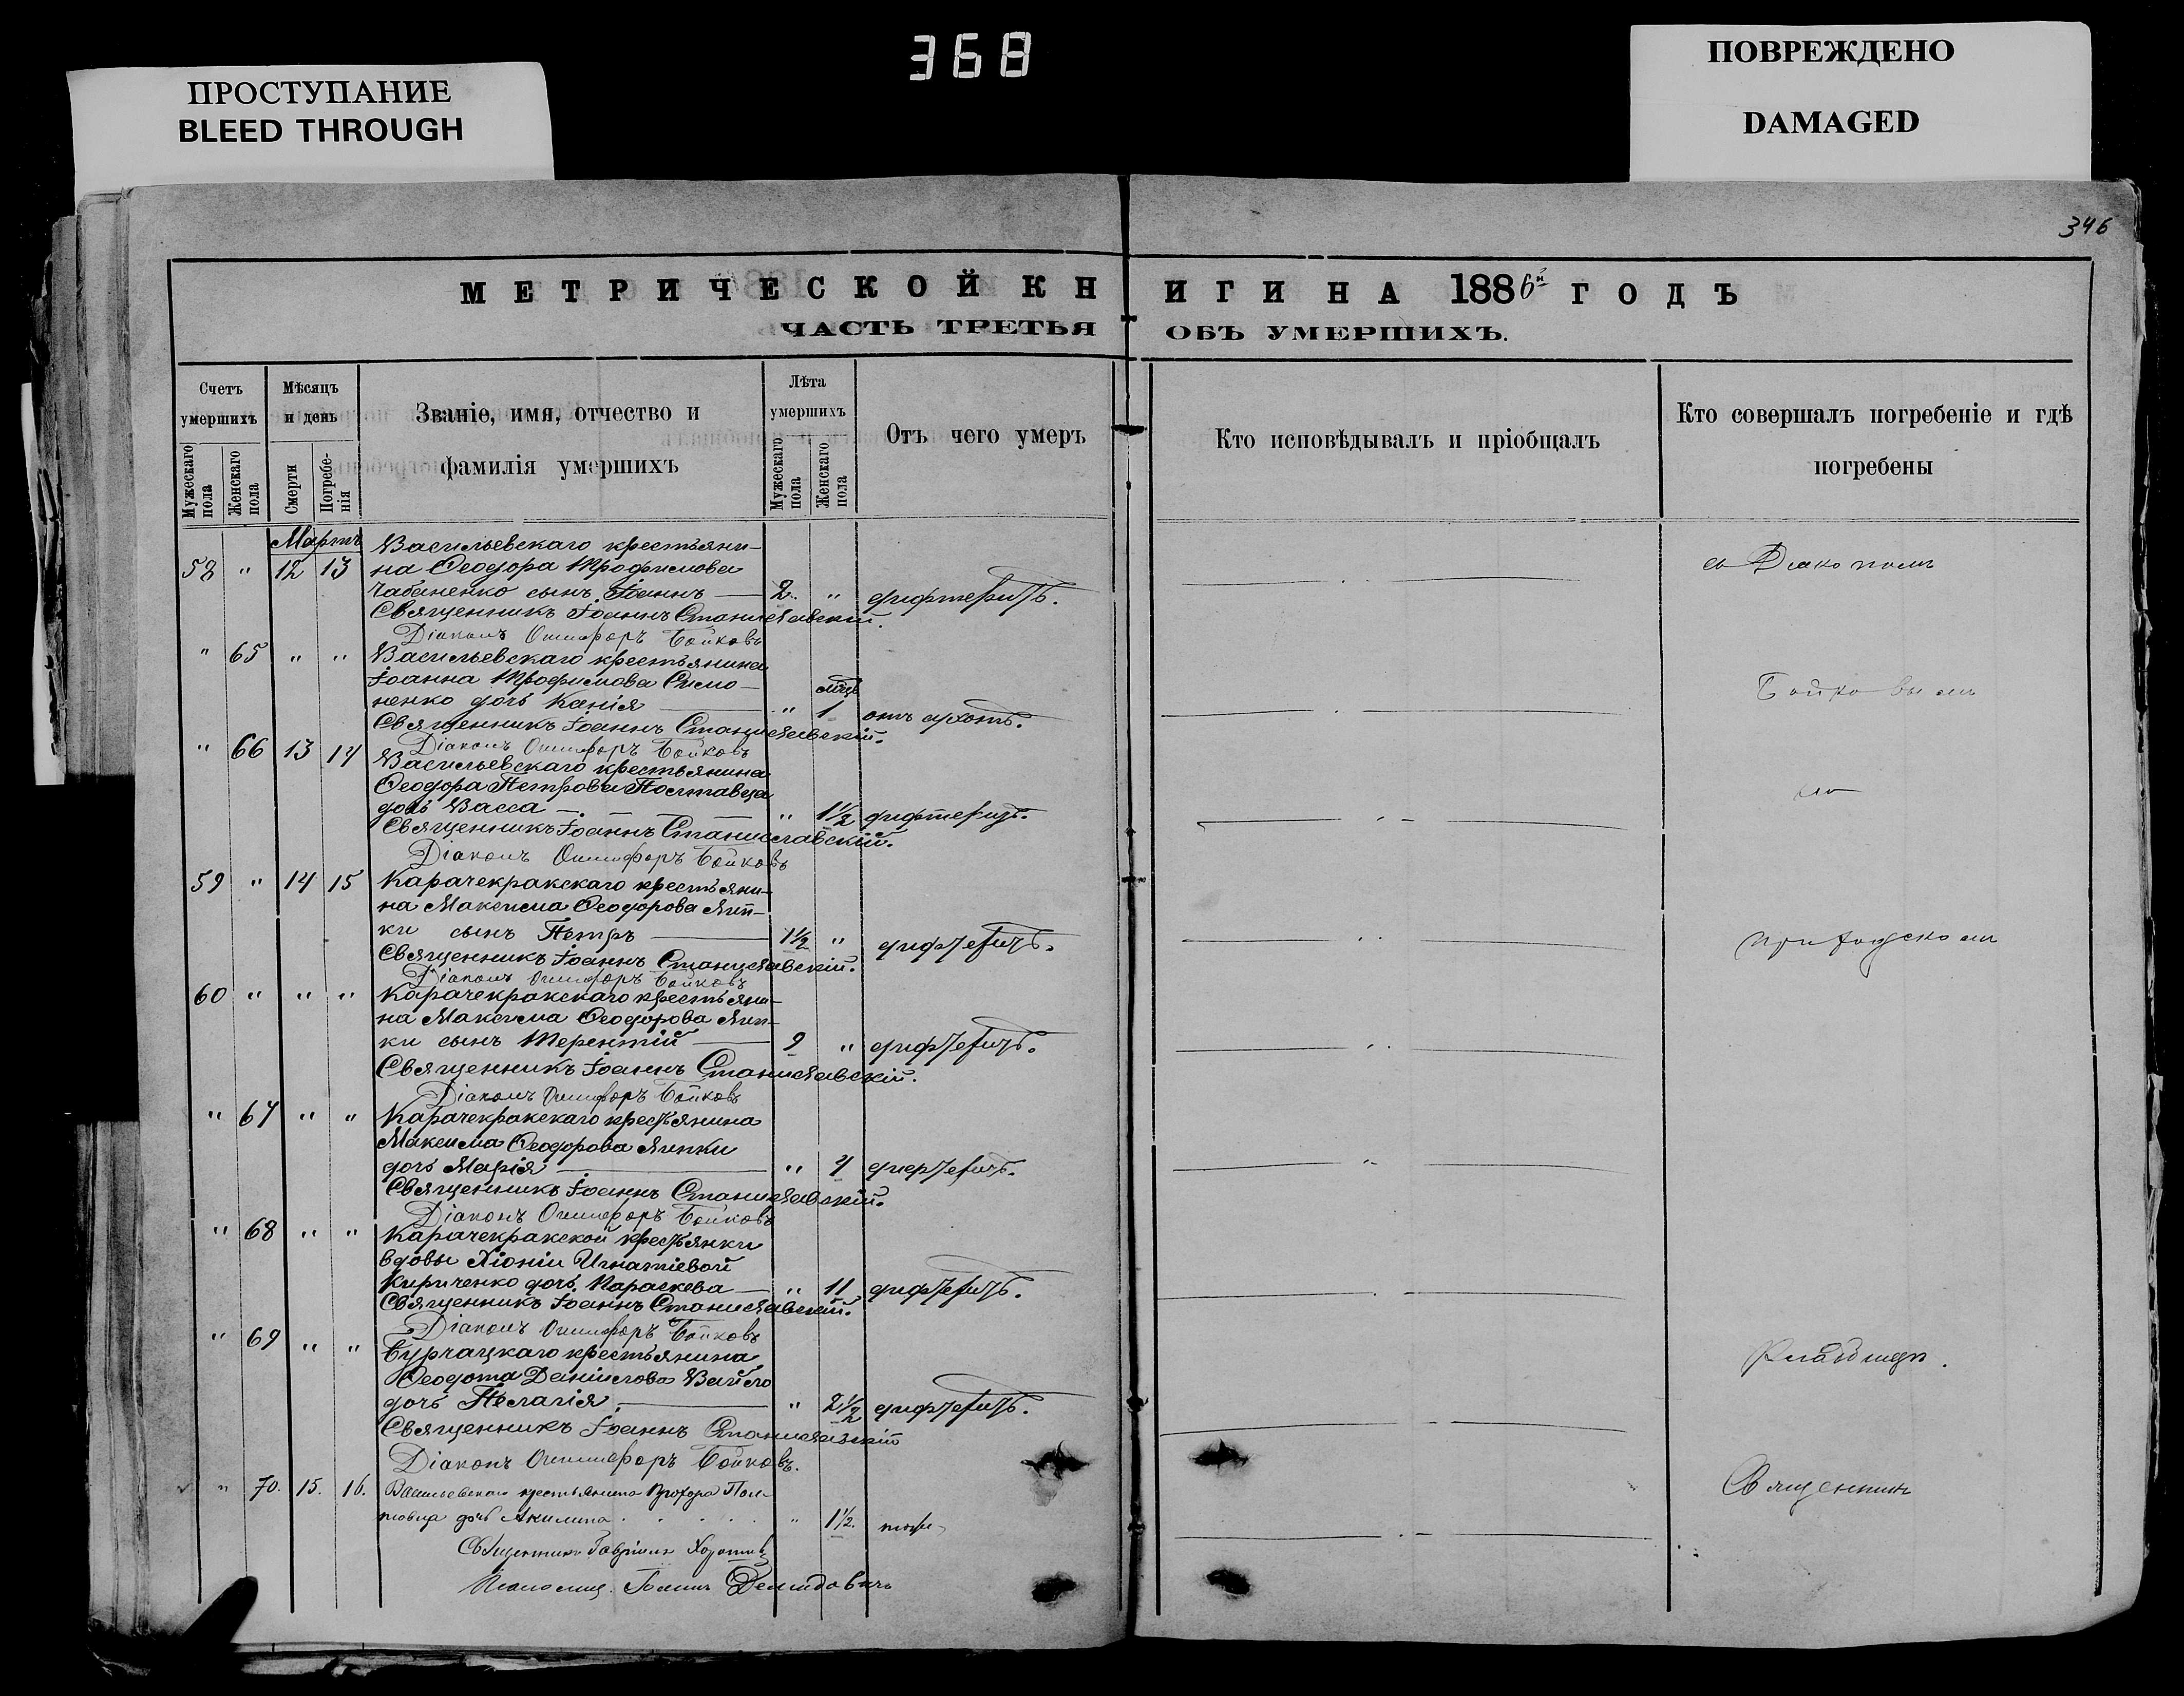 368
ПРОСТУПАНИЕ
BLEED THROUGH
ПОВРЕЖДЕНО
DAMAGED
346
МЕТРИЧЕСКОЙ КНИГИ НА 1886й ГОДЪ
ЧАСТЬ ТРЕТЬЯ ОБЪ УМЕРШИХЪ.
Счетъ умершихъ
Мужескаго пола
Женскаго пола
Мѣсяцъ и день
Смерти
Погребенія
Званіе, имя, отчество и фамилія умершихъ
Лѣта умершихъ
Мужескаго пола
Женскаго пола
Отъ чего умеръ
Кто исповѣдывалъ и пріобщалъ
Кто совершалъ погребеніе и гдѣ погребены
Мартъ
Васильевскаго крестьяни-
58 " 12 13 на Ѳеодора Трофимова
Чабаненко сынъ Іоаннъ — 2. " дифтеритъ.
Священникъ Іоаннъ Станиславскій.
Діаконъ Онисифоръ Бойковъ
" 65 " " Васильевскаго крестьянина
Іоанна Трофимова Симо-
ненко дочь — " 1 отъ
Священникъ Іоаннъ Станиславскій.
Діаконъ Онисифоръ Бойковъ
" 66 13 14 Васильевскаго крестьянина
Ѳеодора Петрова Полтавца
дочь Васса — " 1½ дифтеритъ.
Священникъ Іоаннъ Станиславскій.
Діаконъ Онисифоръ Бойковъ
59 " 14 15 Карачекракскаго крестьяни-
на Максима Ѳеодорова Яип-
ки сынъ Петръ — 1½ " дифтеритъ.
Священникъ Іоаннъ Станиславскій.
Діаконъ Онисифоръ Бойковъ
60 " " " Карачекракскаго крестьяни-
на Максима Ѳеодорова
ки сынъ Терентій — 9 " дифтеритъ.
Священникъ Іоаннъ Станиславскій.
Діаконъ Онисифоръ Бойковъ
" 67 " " Карачекракскаго крестьянина
Максима Ѳеодорова
дочь Марія — " 4 дифтеритъ.
Священникъ Іоаннъ Станиславскій.
Діаконъ Онисифоръ Бойковъ
" 68 " " Карачекракской крестьянки
вдовы Хіоніи Игнатіевой
Кириченко дочь Параскева — " 11 дифтеритъ.
Священникъ Іоаннъ Станиславскій.
Діаконъ Онисифоръ Бойковъ
" 69 " " Бурчацкаго крестьянина
Ѳеодота Даніилова
дочь Пелагія — " 2½ дифтеритъ.
Священникъ Іоаннъ Станиславскій
Діаконъ Онисифоръ Бойковъ.
" 70. 15. 16. Васильевскаго крестьянина Прохора Пол-
тавца дочь Акилина " 1½.
Священникъ Гавріилъ
Іоаннъ Демидовичъ
съ Діакономъ
Бойковымъ
на
приходскомъ
кладбищѣ.
Священникъ